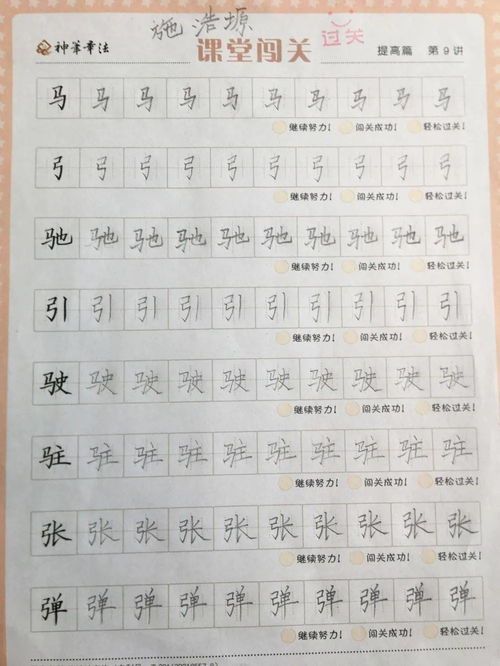 施浩塬
神笔章法 课堂闯关 过关 提高篇 第9讲
马 马 马 马 马 马 马 马 马 马
继续努力! 闯关成功! 轻松过关!
弓 弓 弓 弓 弓 弓 弓 弓 弓 弓
继续努力! 闯关成功! 轻松过关!
驰 驰 驰 驰 驰 驰 驰 驰 驰 驰
继续努力! 闯关成功! 轻松过关!
引 引 引 引 引 引 引 引 引 引
继续努力! 闯关成功! 轻松过关!
驶 驶 驶 驶 驶 驶 驶 驶 驶 驶
继续努力! 闯关成功! 轻松过关!
驻 驻 驻 驻 驻 驻 驻 驻 驻 驻
继续努力! 闯关成功! 轻松过关!
张 张 张 张 张 张 张 张 张 张
继续努力! 闯关成功! 轻松过关!
弹 弹 弹 弹 弹 弹 弹 弹 弹 弹
继续努力! 闯关成功! 轻松过关!